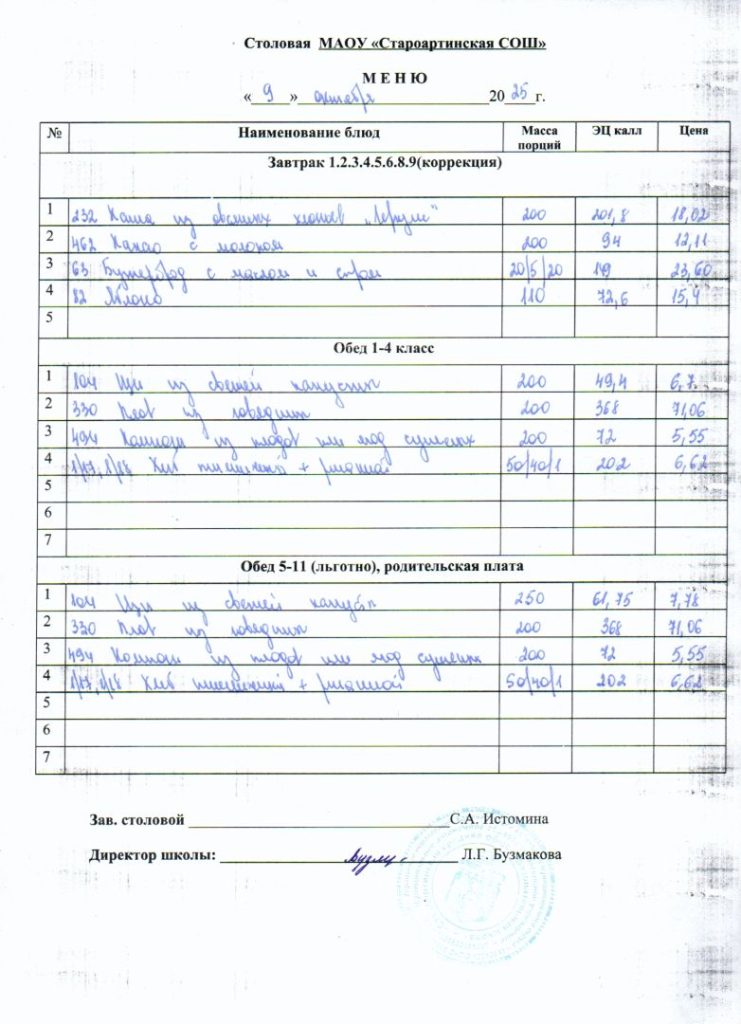 Столовая МАОУ «Староартинская СОШ»
М Е Н Ю
« 9 » октября 20 25 г.
№ Наименование блюд Масса порций ЭЦ калл Цена
Завтрак 1.2.3.4.5.6.8.9(коррекция)
1 232 Каша из овсяных хлопьев „Геркулес" 200 201,8 18,02
2 462 Какао с молоком 200 94 12,11
3 63 Бутерброд с маслом и сыром 20/5/20 23,60
4 82 Яблоко 110 72,6 15,4
5
Обед 1-4 класс
1 104 Щи из свежей капусты 200 49,4 6,7
2 330 Плов из говядины 200 368 71,06
3 494 Компот из плодов или ягод сушеных 200 72 5,55
4 Хлеб пшеничный + ржаной 50/40/1 202 6,62
5
6
7
Обед 5-11 (льготно), родительская плата
1 104 Щи из свежей капусты 250 61,75 7,78
2 330 Плов из говядины 200 368 71,06
3 494 Компот из плодов или ягод сушеных 200 72 5,55
4 Хлеб пшеничный + ржаной 50/40/1 202 6,62
5
6
7
Зав. столовой С.А. Истомина
Директор школы: Л.Г. Бузмакова